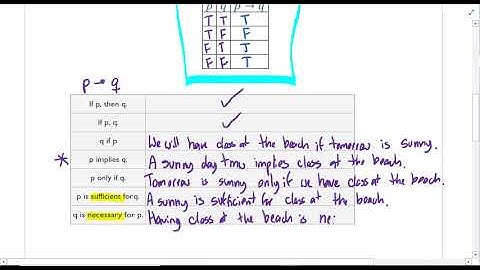 p q p → q
T T T
T F F
F T T
F F T
p → q
If p, then q. ✓
If p, q. ✓
q if p We will have class at the beach if tomorrow is sunny.
* p implies q. A sunny day tmw implies class at the beach.
p only if q. Tomorrow is sunny only if we have class at the beach.
p is sufficient for q. A sunny is sufficient for class at the beach.
q is necessary for p. Having class at the beach is ne